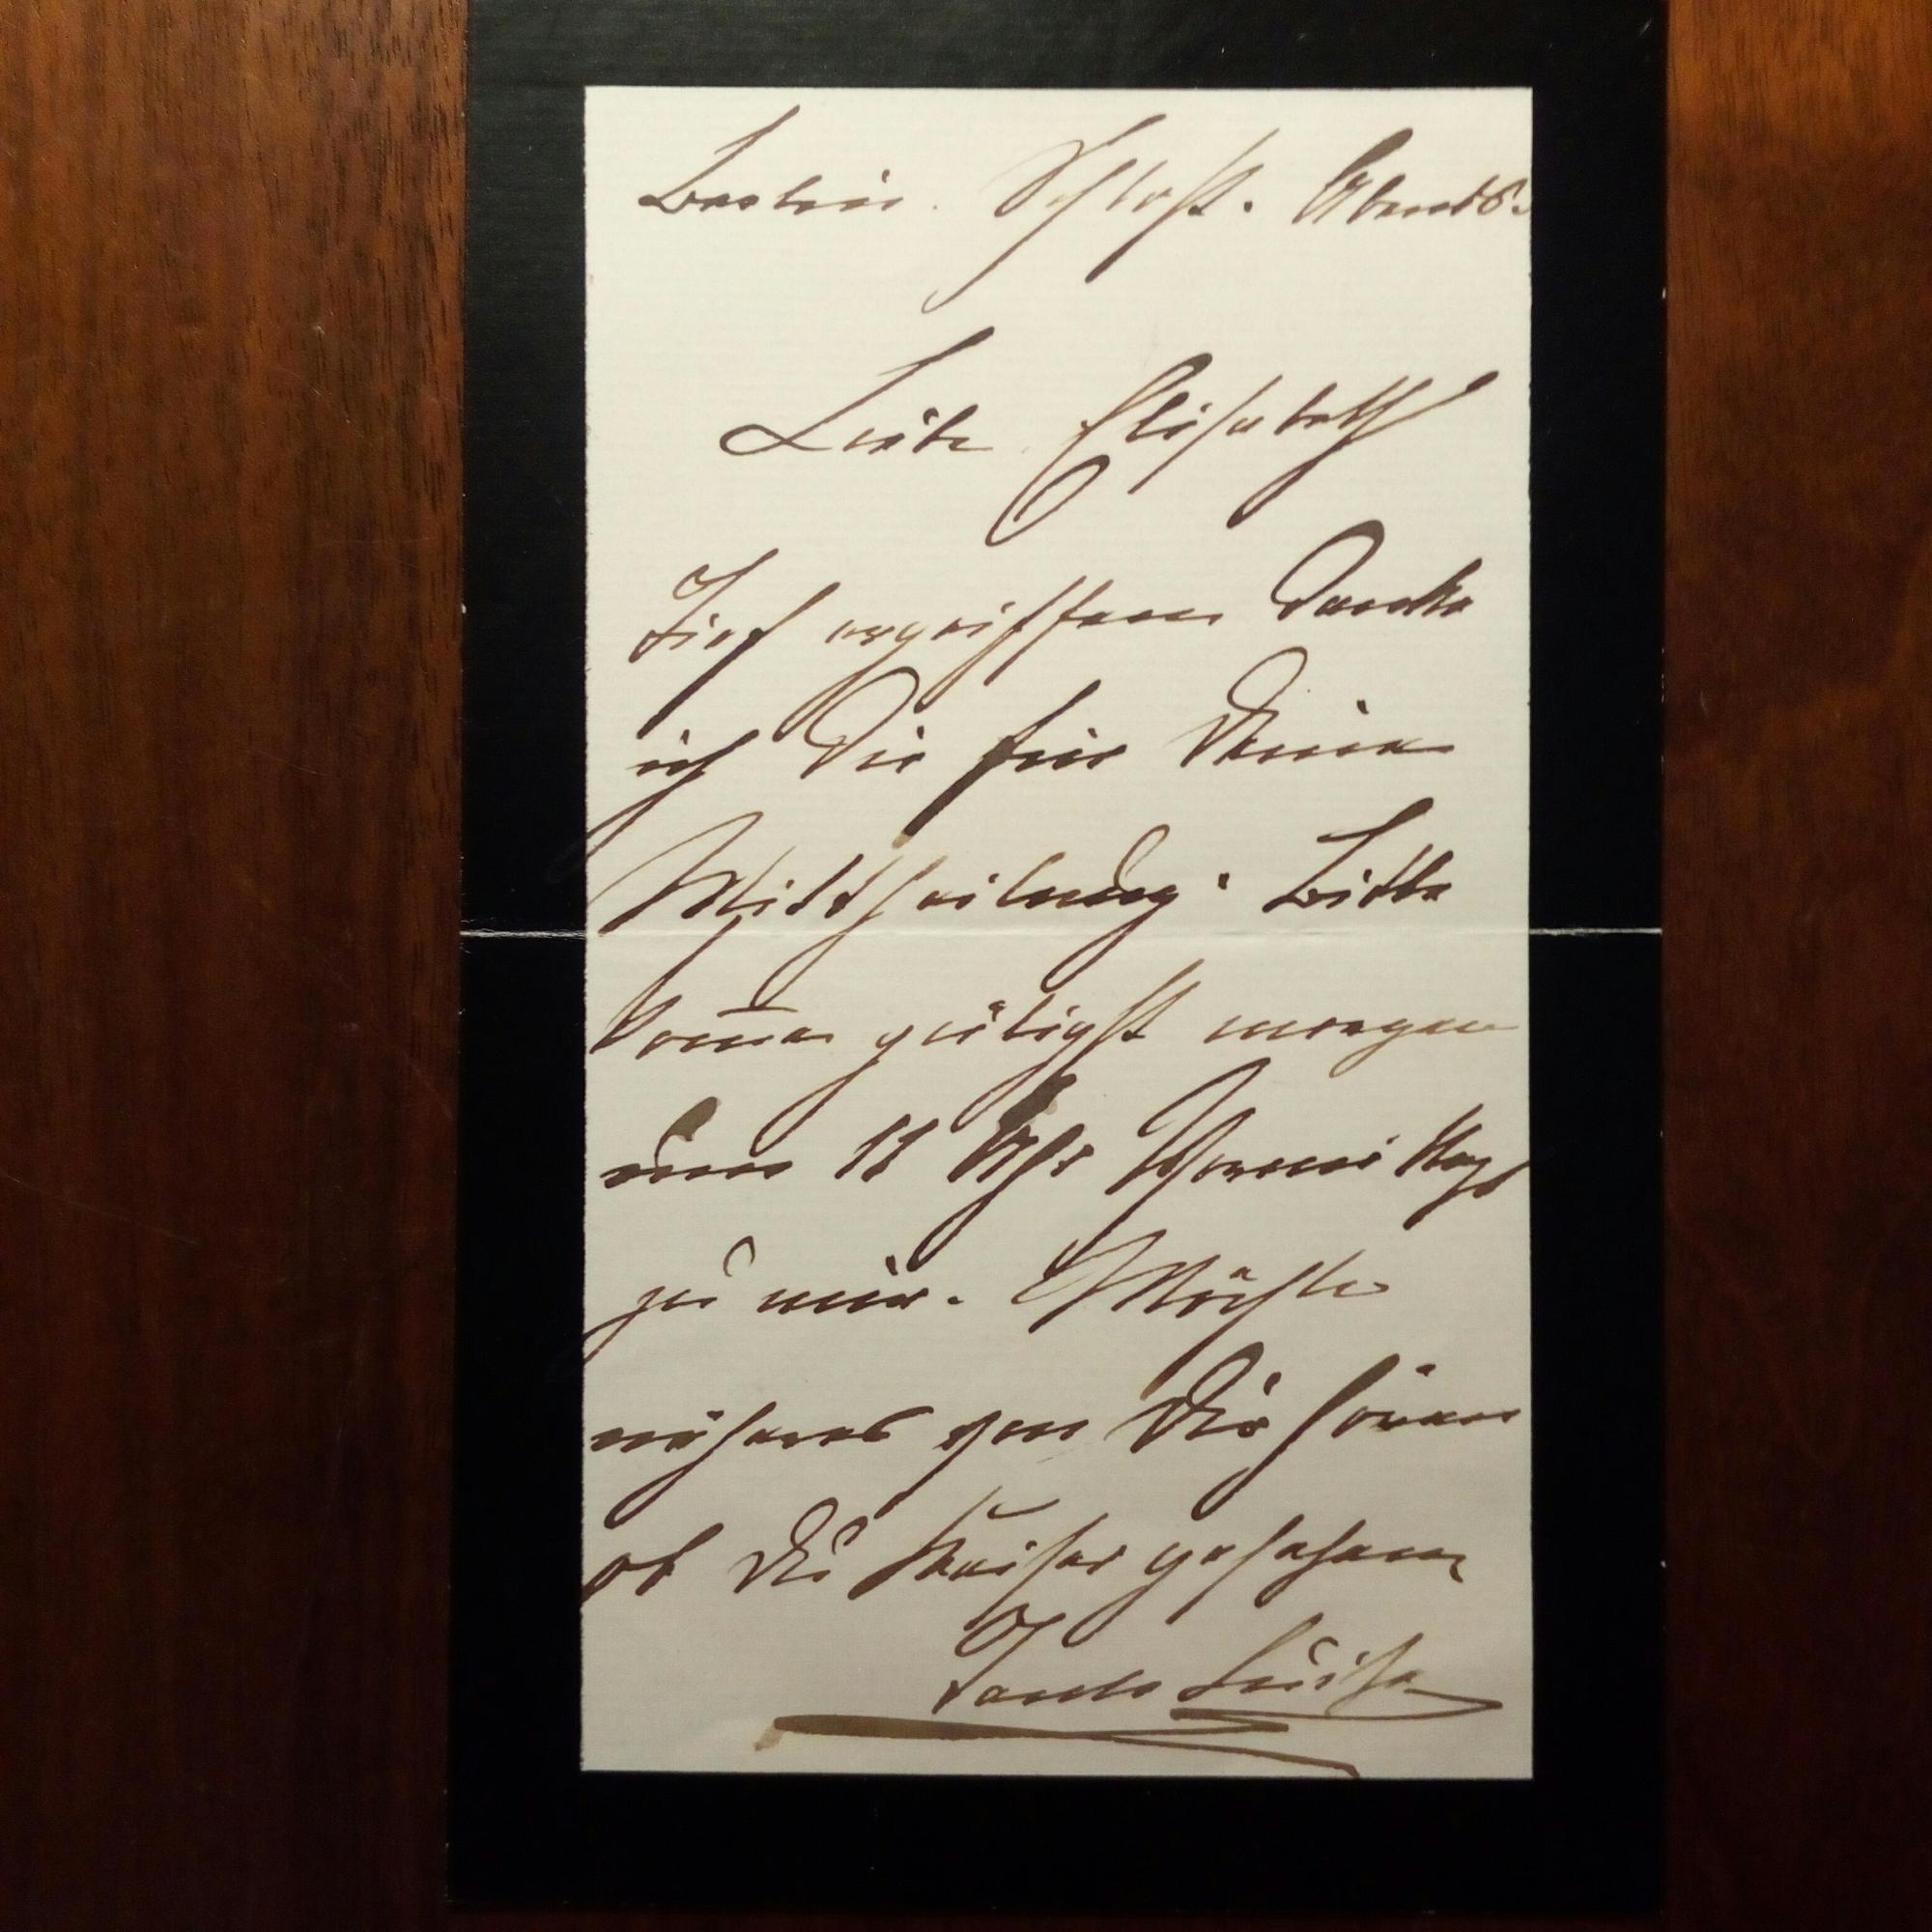 Berlin. Schloß. Abends.
Liebe Elisabeth
Tief ergriffen danke
ich Dir für Deine
Mittheilung. Bitte
kom̅e gütigst morgen
um 11 Uhr Vormittag
zu mir. Möchte
näheres von Dir hören
ob Du Kaiser gesehen
Tante Luise